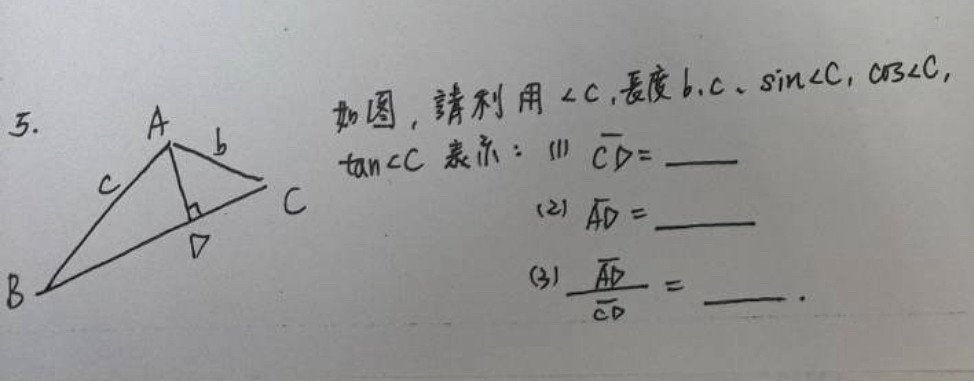 5.
如图,請利用∠C,長度b、c、sin∠C, cos∠C,
tan∠C 表示: (1) \overline{CD} = ____
(2) \overline{AD} = ____
(3) \frac{\overline{AD}}{\overline{CD}} = ____.
A
b
c
C
D
B